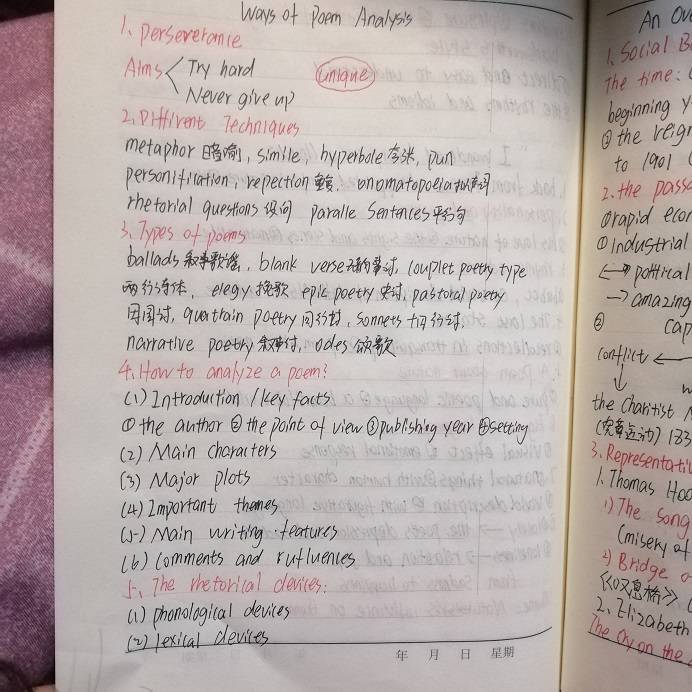 Ways of Poem Analysis
1、perseverance
Aims Try hard
Never give up?
unique
2、Diffirent Techniques
metaphor 暗喻, simile, hyperbole 夸张, pun
personifiration, repection 重复, onomatopoeia 拟声词
rhetorial questions 设问 paralle sentences 平行句
3、Types of poems
ballads 叙事歌谣, blank verse 无韵诗, couplet poetry type
两行诗体, elegy 挽歌 epic poetry 史诗, pastoral poetry
田园诗, quatrain poetry 四行诗, sonnets 十四行诗,
narrative poetry 叙事诗, odes 颂歌
4、How to analyze a poem?
(1) Introduction / key facts
① the author ② the point of view ③ publishing year ④ setting
(2) Main characters
(3) Major plots
(4) Important themes
(5) Main writing features
(6) comments and rufluences
5、The rhetorical devices:
(1) phonological devices
(2) lexical devices
年 月 日 星期
An Ove
1、Social B
The time:
beginning y
② the reign
to 1901
2、the passa
① rapid econ
① Industrial
political
→ amazing
②
cap
conflict ←
the charitist M
(宪章运动) 183
3、Representativ
1、Thomas Hoo
1) The song
(misery of
2) Bridge o
《叹息桥》
2、Elizabeth
The cry on the